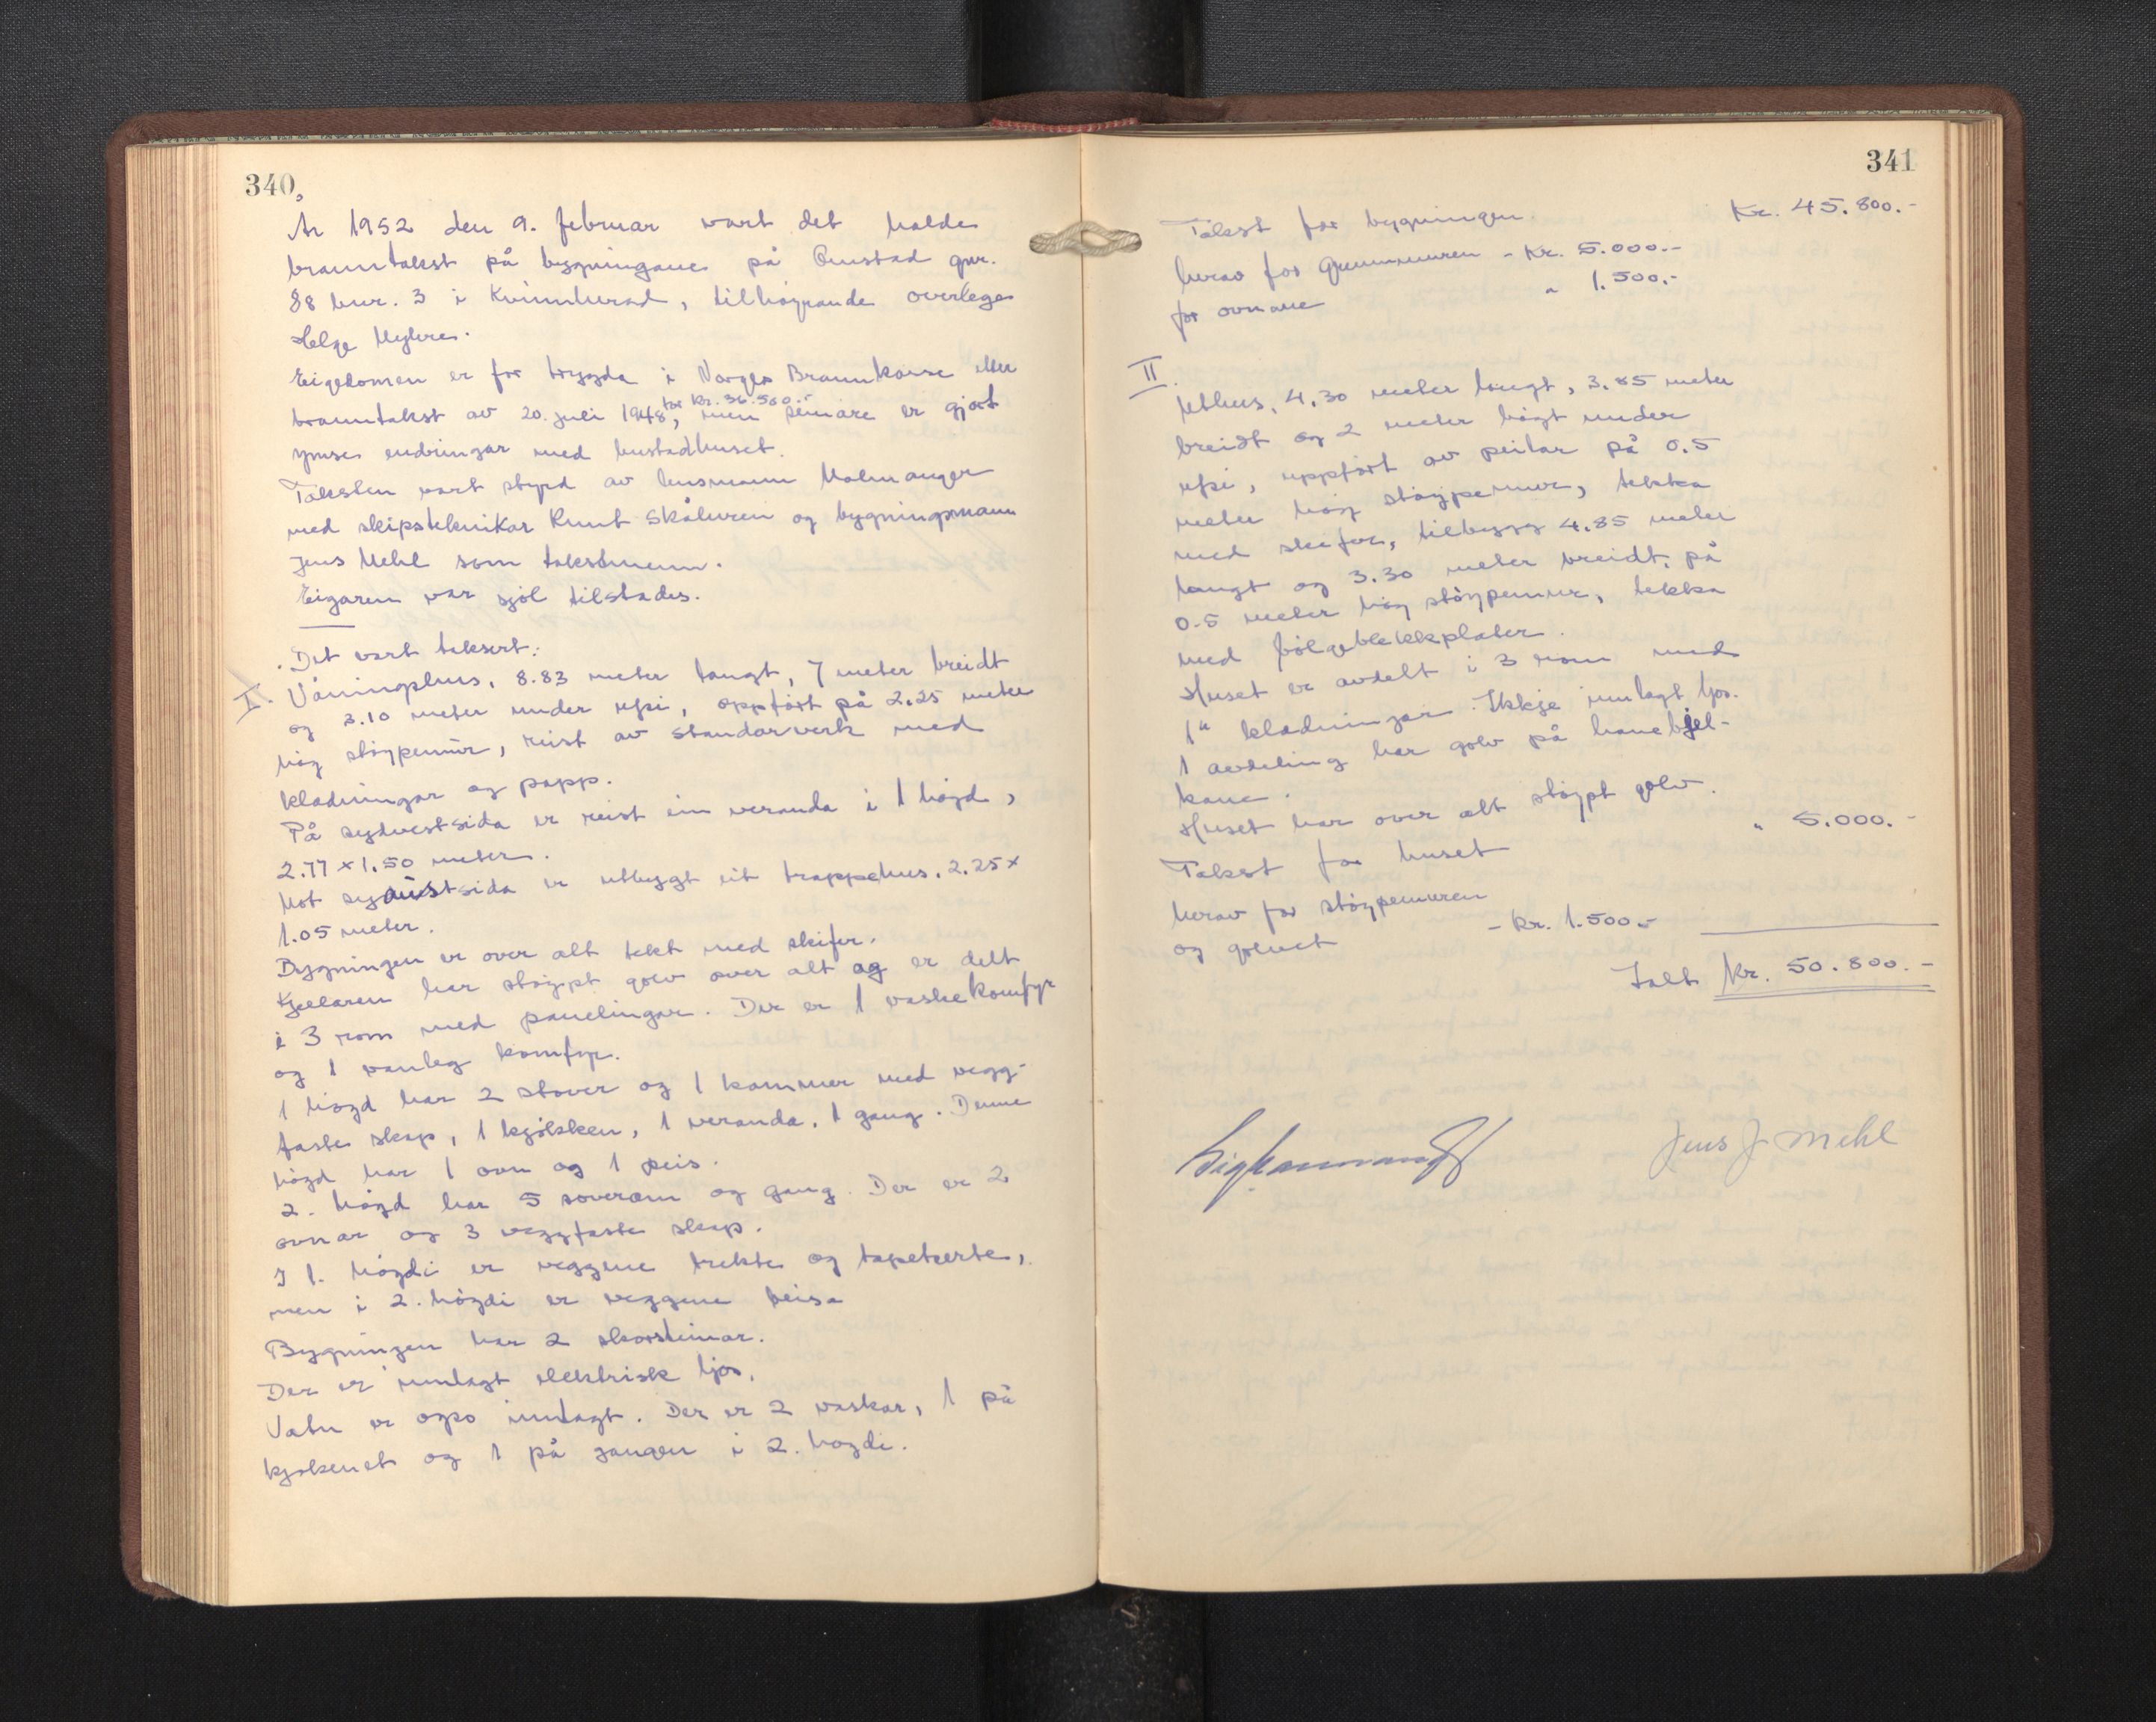 340
År 1952 den 9. februar vart det halde
branntakst på bygningane på Omstad gnr.
88 bnr. 3 i Kvinnherad, tilhøyrande overlege
Helge Myhre.
Eigedomen er før trygda i Norges Brannkasse etter
branntakst av 20. juli 1948, for Kr. 36.500.- men seinare er gjort
ymse endringar med bustadhuset.
Taksten vart styrd av lensmann Malmanger
med skipsteknikar Knut Skåluren og bygningsmann
Jens Mehl som takstmenn.
Eigaren var sjöl tilstades.
Det vart taksert:
I. Våningshus, 8.83 meter langt, 7 meter breidt
og 3.10 meter under ufsi, oppført på 2.25 meter
høg støypemur, reist av standarverk med
kledningar og papp.
På sydvestsida er reist ein veranda i 1 høgd,
2.77 x 1.50 meter.
Mot sydaustsida er utbygt eit trappehus, 2.25 x
1.05 meter.
Bygningen er over alt tekt med skifer.
Kjellaren har støypt golv over alt og er delt
i 3 rom med panelingar. Der er 1 vaskekomfyr
og 1 vanleg komfyr.
1 høgd har 2 stover og 1 kammer med vegg-
faste skap, 1 kjøkken, 1 veranda, 1 gang. Denne
høgd har 1 ovn og 1 peis.
2. høgd har 5 soverom og gang. Der er 2
ovnar og 3 veggfaste skap.
I 1. høgdi er veggene trekte og tapetserte,
men i 2. høgdi er veggene beisa
Bygningen har 2 skorsteinar.
Der er innlagt elektrisk ljos.
Vatn er ogso innlagt. Der er 2 vaskar, 1 på
kjøkenet og 1 på gangen i 2. høgdi.
341
Takst for bygningen. Kr. 45.800.-
herav for grunnmuren - Kr. 5.000.-
for ovnane " 1.500.-
II.
Uthus, 4.30 meter langt, 3.85 meter
breidt og 2 meter høgt under
ufsi, uppført av peilar på 0.5
meter høg støypemur, tekka
med skifer, tilbygg 4.85 meter
langt og 3.30 meter breidt, på
0.5 meter høg støypemur, tekka
med bølgeblekkplater.
Huset er avdelt i 3 rom med
1" kledningar. Ikkje innlagt ljos.
1 avdeling har golv på hanebjel-
kane.
Huset har over alt støypt golv.
Takst for huset " 5.000.-
herav for støypemuren
og golvet - Kr. 1.500.-
Ialt Kr. 50.800.-
Jens J Mehl